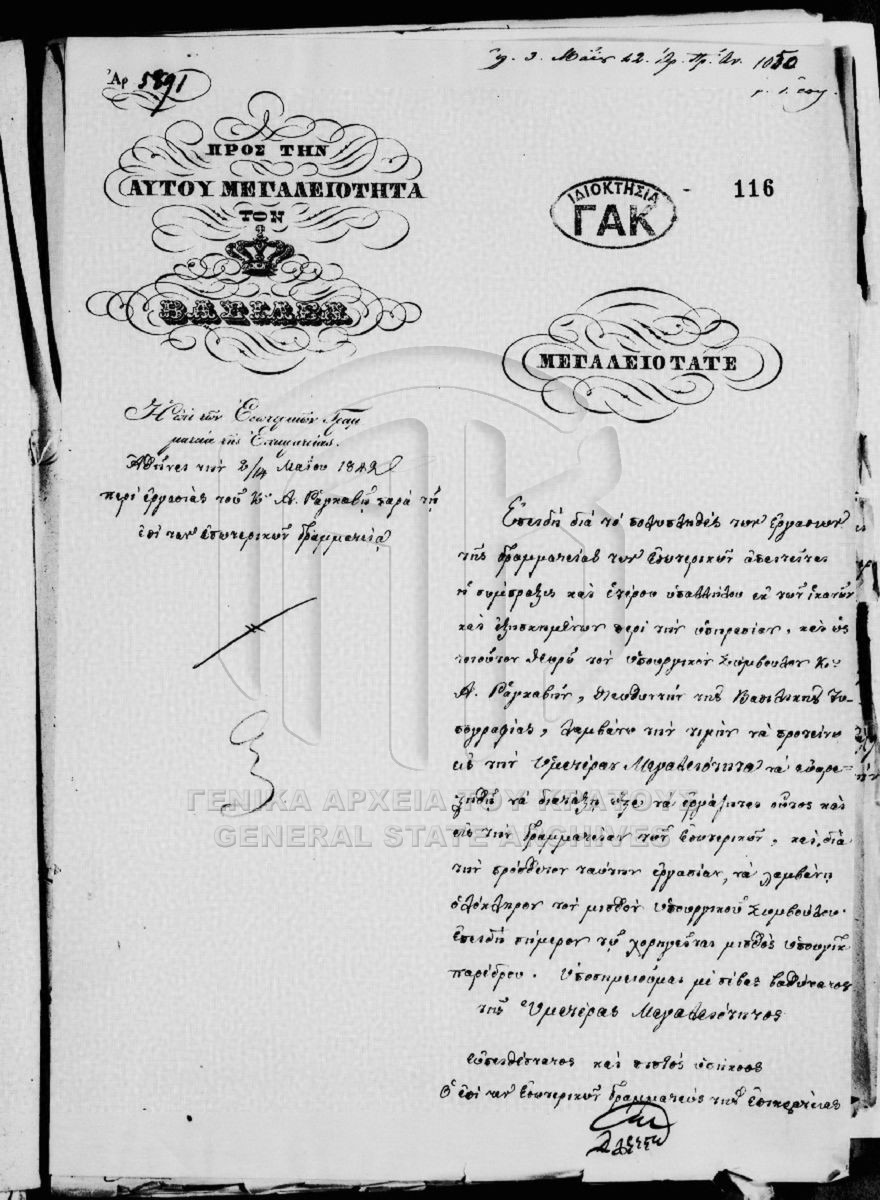 Ἀρ 5891
Μαΐου 42. Ἀρ. Πρ. 1050
ΠΡΟΣ ΤΗΝ
ΑΥΤΟΥ ΜΕΓΑΛΕΙΟΤΗΤΑ
ΤΟΝ
ΒΑΣΙΛΕΑ
ΙΔΙΟΚΤΗΣΙΑ
ΓΑΚ
116
ΜΕΓΑΛΕΙΟΤΑΤΕ
Ἡ ἐπὶ τῶν Ἐσωτερικῶν Γραμ
ματεία τῆς Ἐπικρατείας.
Ἀθῆναι τὴν 2/14 Μαΐου 1842
περὶ ἐργασίας τοῦ Κυ Α. Ῥαγκαβῆ παρὰ τῇ
ἐπὶ τῶν ἐσωτερικῶν Γραμματείᾳ
Ἐπειδὴ διὰ τὸ πολυπληθὲς τῶν ἐργασιῶν
τῆς Γραμματείας τῶν Ἐσωτερικῶν ἀπαιτεῖται
ἡ σύμπραξις καὶ ἑτέρου ὑπαλλήλου ἐκ τῶν ἱκανῶν
καὶ ἐξησκημένων περὶ τὴν ὑπηρεσίαν, καὶ ὡς
τοιοῦτον θεωρῶ τὸν ὑπουργικὸν Σύμβουλον Κ.
Α. Ῥαγκαβῆν, διευθυντὴν τῆς Βασιλικῆς Τυ-
πογραφίας, λαμβάνω τὴν τιμὴν νὰ προτείνω
εἰς τὴν Ὑμετέραν Μεγαλειότητα νὰ εὐαρε-
στηθῇ νὰ διατάξῃ ὥστε νὰ ἐργάζηται οὗτος καὶ
εἰς τὴν Γραμματείαν τῶν Ἐσωτερικῶν, καὶ διὰ
τὴν πρόσθετον ταύτην ἐργασίαν, νὰ λαμβάνῃ
ὁλόκληρον τὸν μισθὸν ὑπουργικοῦ Συμβούλου.
ἐπειδὴ σήμερον τῷ χορηγεῖται μισθὸς ὑπουργικ
παρέδρου. Ὑποσημειοῦμαι μὲ σέβας βαθύτατον
τῆς Ὑμετέρας Μεγαλειότητος
εὐπειθέστατος καὶ πιστὸς ὑπήκοος
Ὁ ἐπὶ τῶν Ἐσωτερικῶν Γραμματεὺς τῆς Ἐπικρατείας
ΓΕΝΙΚΑ ΑΡΧΕΙΑ ΤΟΥ ΚΡΑΤΟΥΣ
GENERAL STATE ARCHIVES